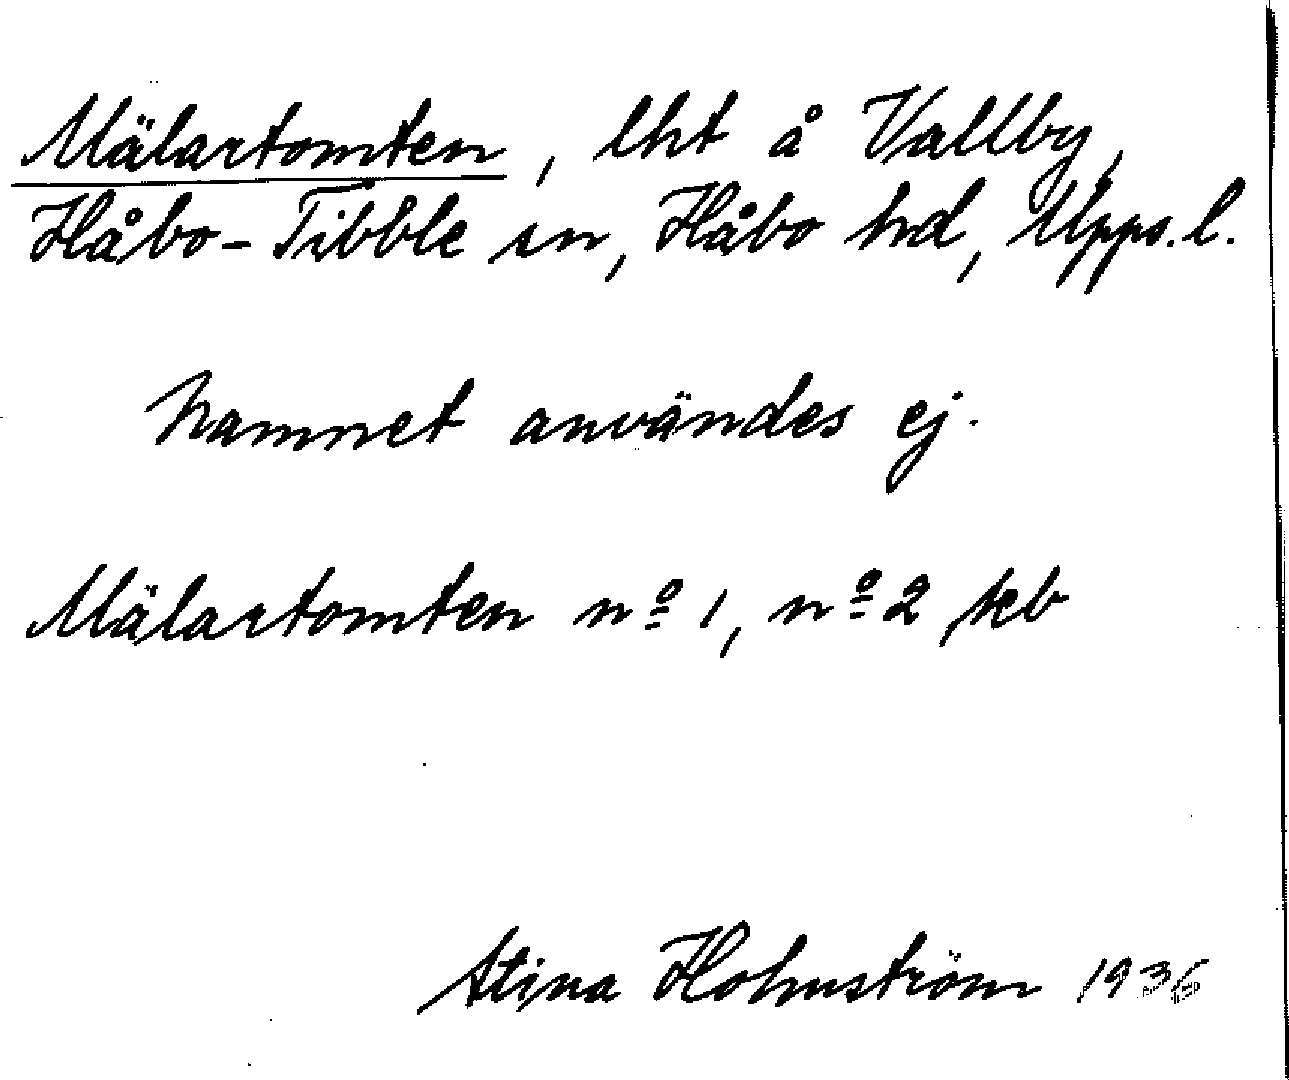 Mälartomten, lht å Vallby,
Håbo-Tibble sn, Håbo hd, Upps. l.
Namnet användes ej.
Mälartomten nº 1, nº 2 kb
Stina Holmström 1936